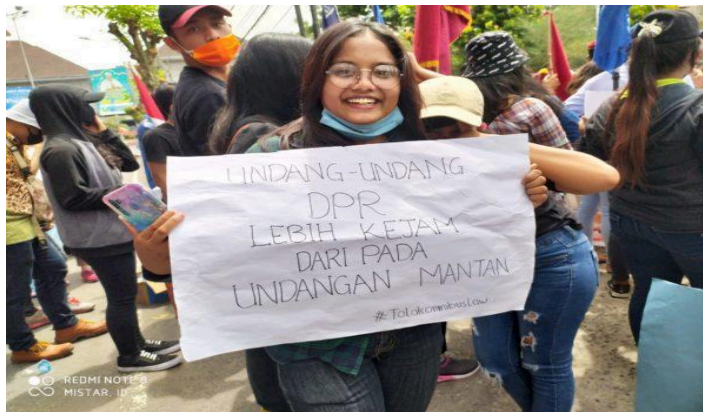 UNDANG-UNDANG
DPR
LEBIH KEJAM
DARI PADA
UNDANGAN MANTAN
#Tolakomnibuslaw
REDMI NOTE 8
MISTAR. ID